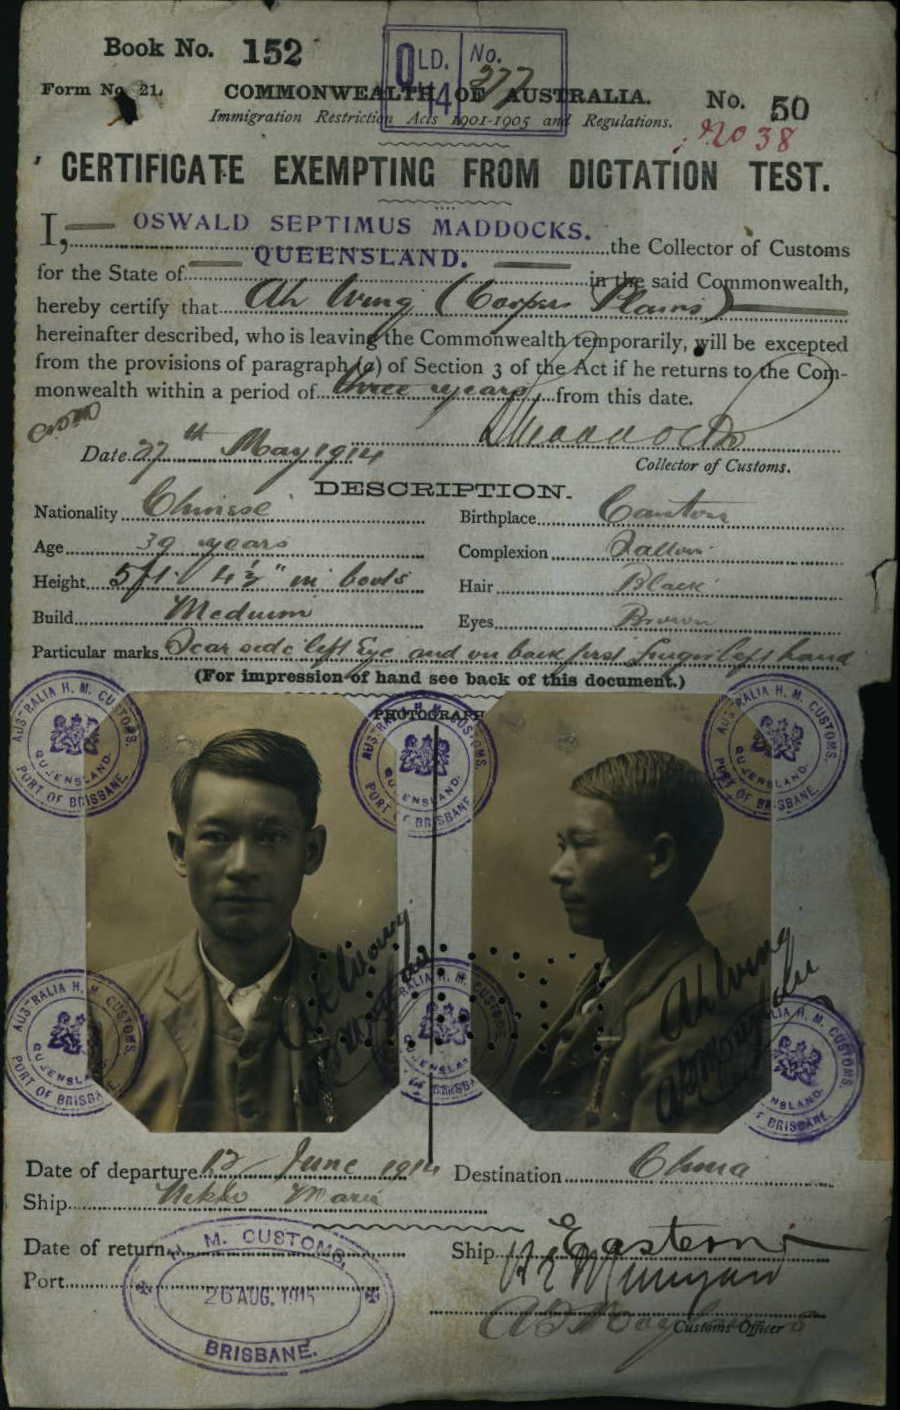 Book No. 152
QLD. 44 No. 377
Form No. 21. COMMONWEALTH OF AUSTRALIA. No. 50
Immigration Restriction Acts 1901-1905 and Regulations.
No 38
CERTIFICATE EXEMPTING FROM DICTATION TEST.
I, OSWALD SEPTIMUS MADDOCKS. the Collector of Customs
for the State of QUEENSLAND. in the said Commonwealth,
hereby certify that Ah Wing (Cooper Plains)
hereinafter described, who is leaving the Commonwealth temporarily, will be excepted
from the provisions of paragraph (a) of Section 3 of the Act if he returns to the Com-
monwealth within a period of three years from this date.
Date 27th May 1914
Collector of Customs.
DESCRIPTION.
Nationality Chinese Birthplace Canton
Age 39 years Complexion Sallow
Height 5ft. 4½" in boots Hair Black
Build Medium Eyes Brown
Particular marks Scar side left Eye and on back first finger left hand
(For impression of hand see back of this document.)
PHOTOGRAPH
AUSTRALIA H. M. CUSTOMS. QUEENSLAND. PORT OF BRISBANE.
AUSTRALIA H. M. CUSTOMS. QUEENSLAND. PORT OF BRISBANE.
AUSTRALIA H. M. CUSTOMS. QUEENSLAND. PORT OF BRISBANE.
Ah Wing
Ah Wing
AUSTRALIA H. M. CUSTOMS. QUEENSLAND. PORT OF BRISBANE
AUSTRALIA H. M. CUSTOMS. QUEENSLAND. BRISBANE
ALIA H. M. CUSTOMS. NSLAND. OF BRISBANE.
Date of departure 12 June 1914 Destination China
Ship Nikko Maru
Date of return Ship Eastern
Port
H. M. CUSTOMS,
26 AUG. 1915
BRISBANE.
Customs Officer